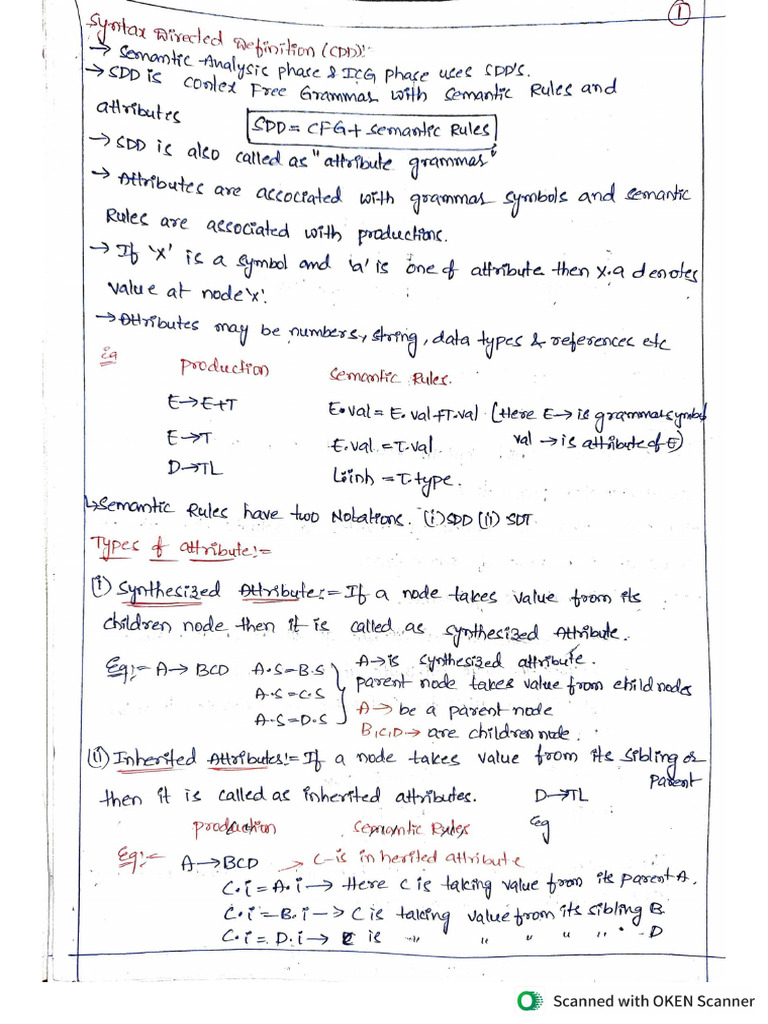 1
Syntax Directed Definition (CDD):-
→ Semantic-Analysic phase & ICG phase uses SDD'S.
→ SDD is contex Free Grammas with Semantic Rules and
attributes
SDD = CFG + Semantic Rules
→ SDD is also called as "attribute grammas"
→ Attributes are associated with grammas symbols and semantic
Rules are associated with productions.
→ If 'x' is a symbol and 'a' is one of attribute then x.a denotes
value at node 'x'.
→ Attributes may be numbers, string, data types & references etc
Eg production Semantic Rules.
E→E+T E.val = E.val+T.val (Here E→ is grammas symbol
E→T E.val = T.val val → is attribute of E)
D→TL L.inh = T.type.
↳ Semantic Rules have two Notations. (i) SDD (ii) SDT
Types of attribute:-
(i) Synthesized Attribute:= If a node takes value from its
children node then it is called as synthesized Attribute.
Eg:- A→BCD A.S=B.S A→is synthesized attribute.
A.S=C.S parent node takes value from child nodes
A.S=D.S A→ be a parent node
B,C,D→ are children node.
(ii) Inherited Attributes:= If a node takes value from its sibling or
parent
then it is called as inherited attributes. D→TL
production Semantic Rules Eg
Eg:- A→BCD → C-is inherited attribute
C.i = A.i → Here C is taking value from its parent A.
C.i = B.i → C is taking value from its sibling B.
C.i = D.i → C is " " " " " . D
Scanned with OKEN Scanner